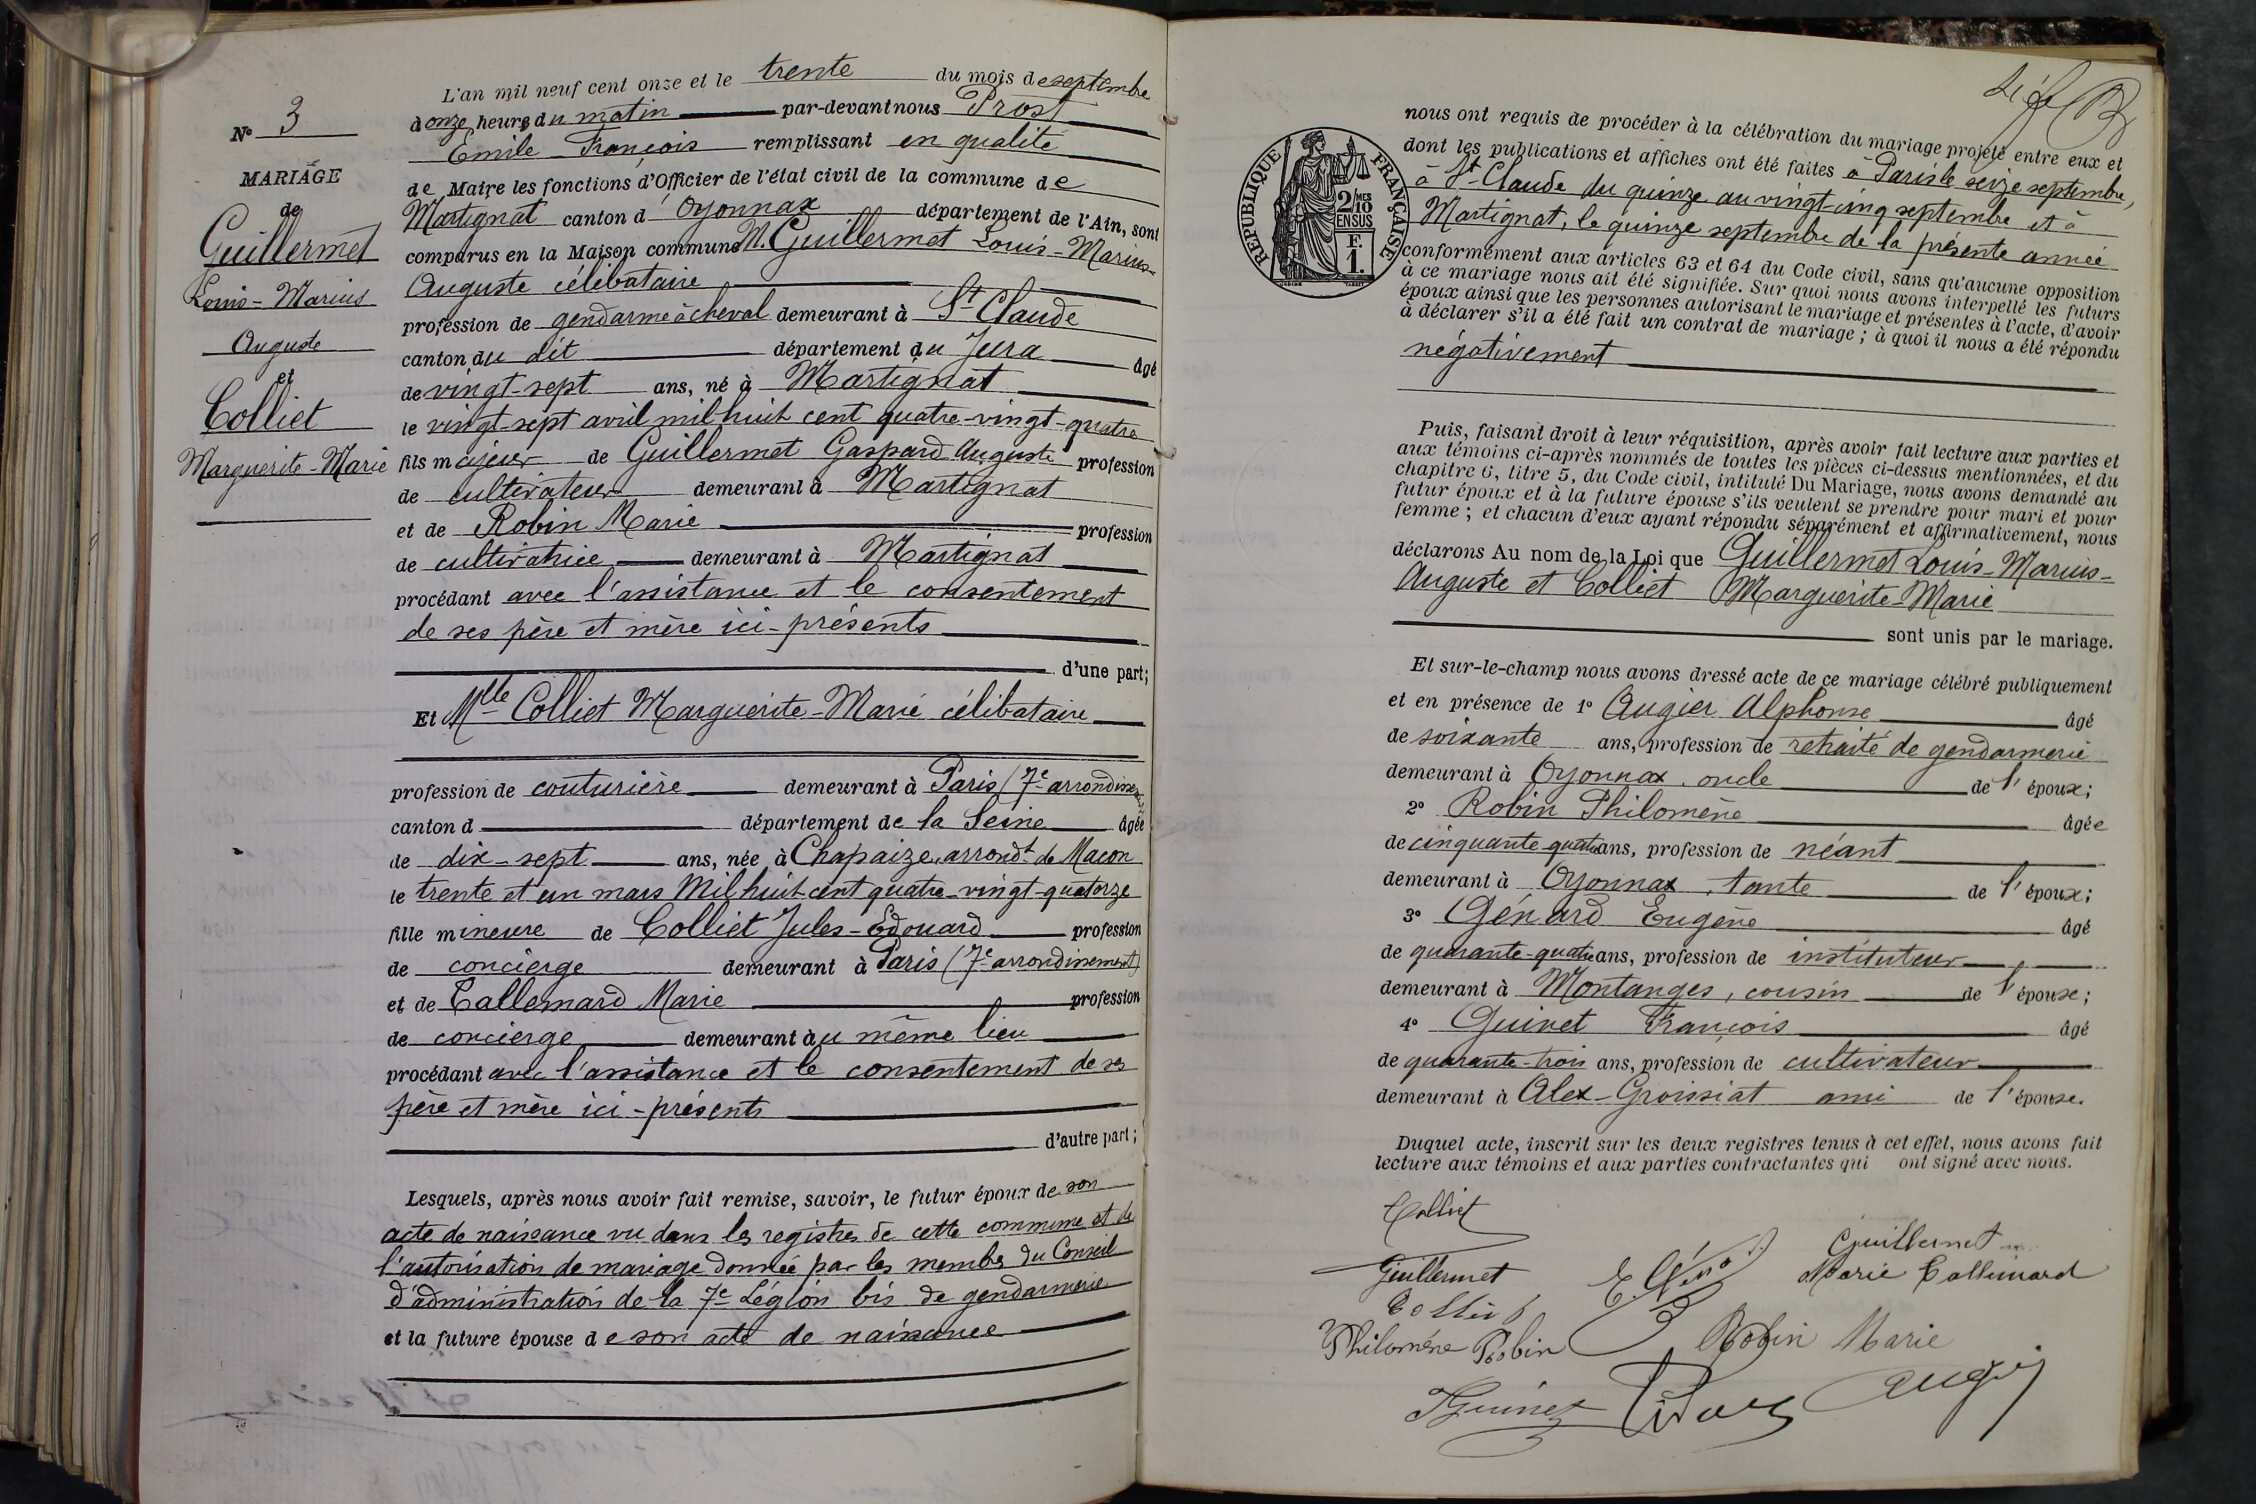 N° 3
MARIAGE
de
Guillermet
Louis-Marius
Auguste
et
Colliet
Marguerite-Marie
L'an mil neuf cent onze et le trente du mois de septembre
à onze heures du matin par-devant nous Prost
Emile François remplissant en qualité
de Maire les fonctions d'Officier de l'état civil de la commune de
Martignat canton d'Oyonnax département de l'Ain, sont
comparus en la Maison commune M. Guillermet Louis-Marius-
Auguste célibataire
profession de gendarme à cheval demeurant à St Claude
canton du dit département du Jura âgé
de vingt-sept ans, né à Martignat
le vingt-sept avril mil huit cent quatre-vingt-quatre
fils majeur de Guillermet Gaspard Auguste profession
de cultivateur demeurant à Martignat
et de Robin Marie profession
de cultivatrice demeurant à Martignat
procédant avec l'assistance et le consentement
de ses père et mère ici-présents
d'une part;
Et Mlle Colliet Marguerite-Marie célibataire
profession de couturière demeurant à Paris (7e arrondissement
canton d département de la Seine âgée
de dix-sept ans, née à Chapaize, arrondt de Macon
le trente et un mars Mil huit cent quatre-vingt-quatorze
fille mineure de Colliet Jules-Edouard profession
de concierge demeurant à Paris (7e arrondissement)
et de Tallemard Marie profession
de concierge demeurant au même lieu
procédant avec l'assistance et le consentement de ses
père et mère ici-présents
d'autre part;
Lesquels, après nous avoir fait remise, savoir, le futur époux de son
acte de naissance vu dans les registres de cette commune et de
l'autorisation de mariage donnée par les membres du Conseil
d'administration de la 7e Légion bis de gendarmerie
et la future épouse de son acte de naissance
RÉPUBLIQUE FRANÇAISE
2/10 MES
EN SUS
F.
1.
nous ont requis de procéder à la célébration du mariage projeté entre eux et
dont les publications et affiches ont été faites à Paris le seize septembre,
à St-Claude du quinze au vingt-cinq septembre et à
Martignat, le quinze septembre de la présente année
conformément aux articles 63 et 64 du Code civil, sans qu'aucune opposition
à ce mariage nous ait été signifiée. Sur quoi nous avons interpellé les futurs
époux ainsi que les personnes autorisant le mariage et présentes à l'acte, d'avoir
à déclarer s'il a été fait un contrat de mariage; à quoi il nous a été répondu
négativement
Puis, faisant droit à leur réquisition, après avoir fait lecture aux parties et
aux témoins ci-après nommés de toutes les pièces ci-dessus mentionnées, et du
chapitre 6, titre 5, du Code civil, intitulé Du Mariage, nous avons demandé au
futur époux et à la future épouse s'ils veulent se prendre pour mari et pour
femme; et chacun d'eux ayant répondu séparément et affirmativement, nous
déclarons Au nom de la Loi que Guillermet Louis-Marius-
Auguste et Colliet Marguerite-Marie
sont unis par le mariage.
Et sur-le-champ nous avons dressé acte de ce mariage célébré publiquement
et en présence de 1° Augier Alphonse âgé
de soixante ans, profession de retraité de gendarmerie
demeurant à Oyonnax, oncle de l'époux;
2° Robin Philomène âgée
de cinquante-quatre ans, profession de néant
demeurant à Oyonnax, tante de l'époux;
3° Génard Eugène âgé
de quarante-quatre ans, profession de instituteur
demeurant à Montanges, cousin de l'épouse;
4° Guinet François âgé
de quarante-trois ans, profession de cultivateur
demeurant à Alex-Groissiat ami de l'épouse.
Duquel acte, inscrit sur les deux registres tenus à cet effet, nous avons fait
lecture aux témoins et aux parties contractantes qui ont signé avec nous.
Colliet
Guillermet
Guillermet
Marie Tallemard
Colliet
Philomène Robin
Robin Marie
Guinet
Augier